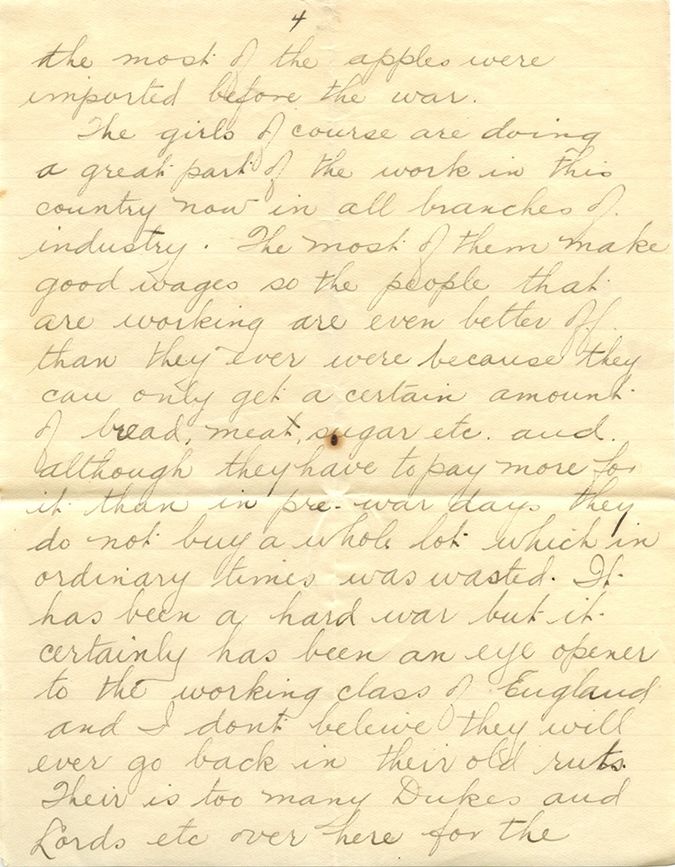 4
the most of the apples were
imported before the war.
The girls of course are doing
a great part of the work in this
country now in all branches of
industry. The most of them make
good wages so the people that
are working are even better off
than they ever were because they
can only get a certain amount
of bread, meat, sugar etc. and
although they have to pay more for
it than in pre-war days they
do not buy a whole lot which in
ordinary times was wasted. It
has been a hard war but it
certainly has been an eye opener
to the working class of England
and I dont beleive they will
ever go back in their old ruts.
Their is too many Dukes and
Lords etc over here for the